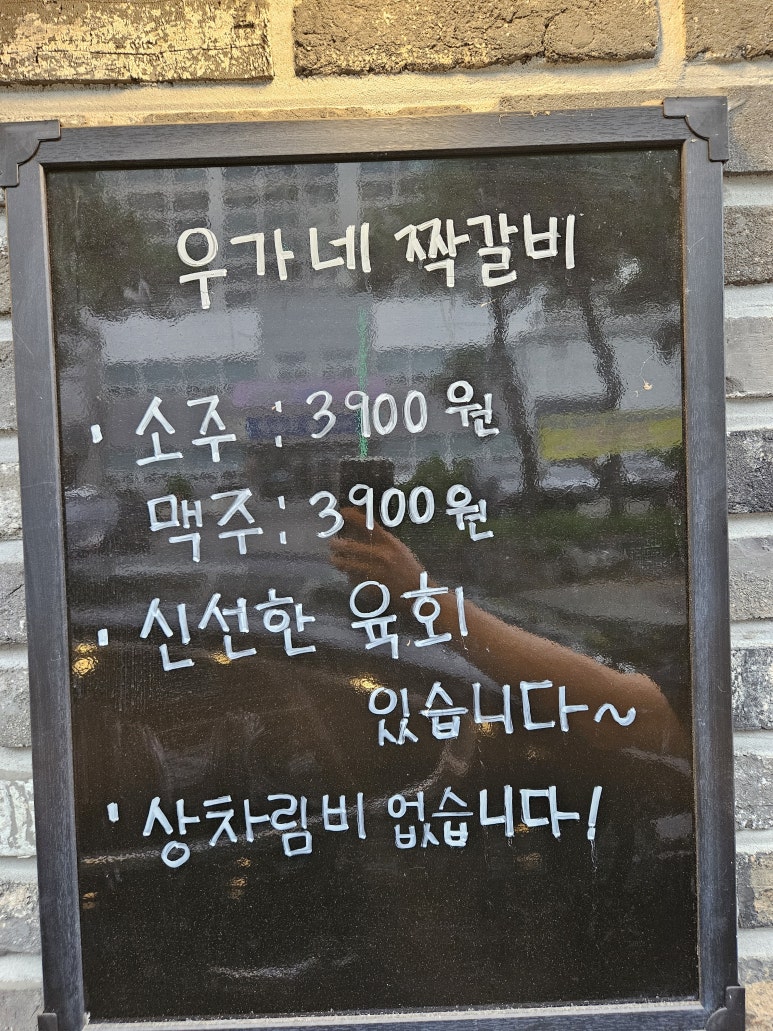 우가네 짝갈비
· 소주 : 3900원
맥주 : 3900원
· 신선한 육회
있습니다~
· 상차림비 없습니다!